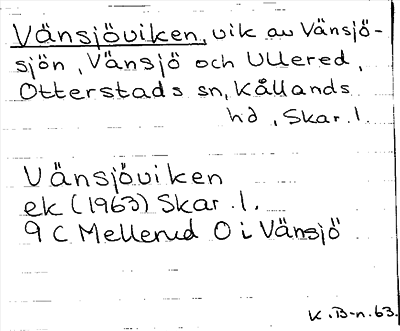 Vänsjöviken, vik av Vänsjö-
sjön, Vänsjö och Ullered,
Otterstads sn, Kållands
hd, Skar. l.
Vänsjöviken
ek (1963) Skar. l.
9 C Mellerud O i Vänsjö
K. B-n. 63.